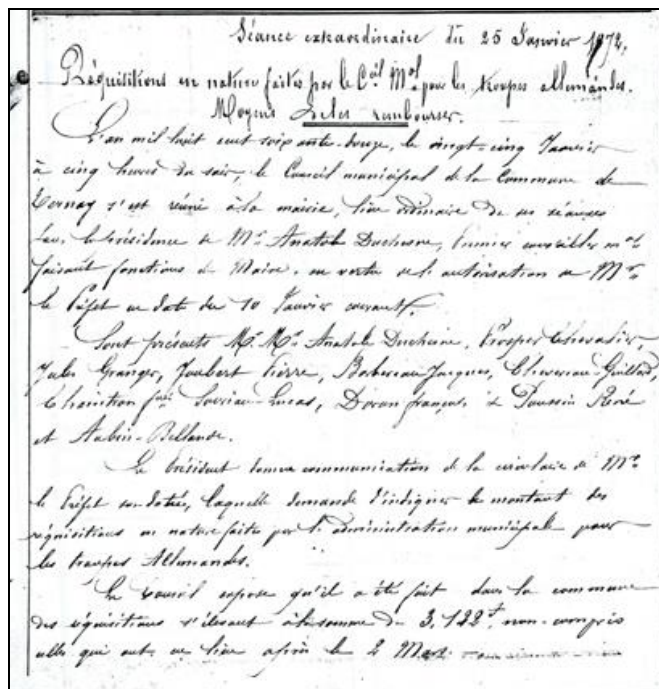 Séance extraordinaire du 25 Janvier 1872.
Réquisitions en nature faites par le C.el M.al pour les troupes allemandes.
Moyens de les rembourser.
L'an mil huit cent soixante-douze, le vingt-cinq Janvier
à cinq heures du soir, le Conseil municipal de la Commune de
Vernay s'est réuni à la mairie, lieu ordinaire de ses séances
sous la présidence de Mr Anatole Duchesne, premier conseiller m.al
faisant fonctions de Maire, en vertu de l'autorisation de Mr
le Préfet en date du 10 Janvier courant.
Sont présents M.M. Anatole Duchesne, Prosper Chevalier,
Jules Granger, Joubert Pierre, Barbereau Jacques,
Lucas, Doron françois, Poussin René
et Aubin-Bellande.
Le Président donne communication de la circulaire de Mr
le Préfet sus-datée, laquelle demande d'indiquer le montant des
réquisitions en nature faites par l'administration municipale pour
les troupes Allemandes.
Le Conseil expose qu'il a été fait dans la commune
des réquisitions s'élevant à la somme de 3,122f, non-compris
celles qui ont eu lieu après le 2 Mars